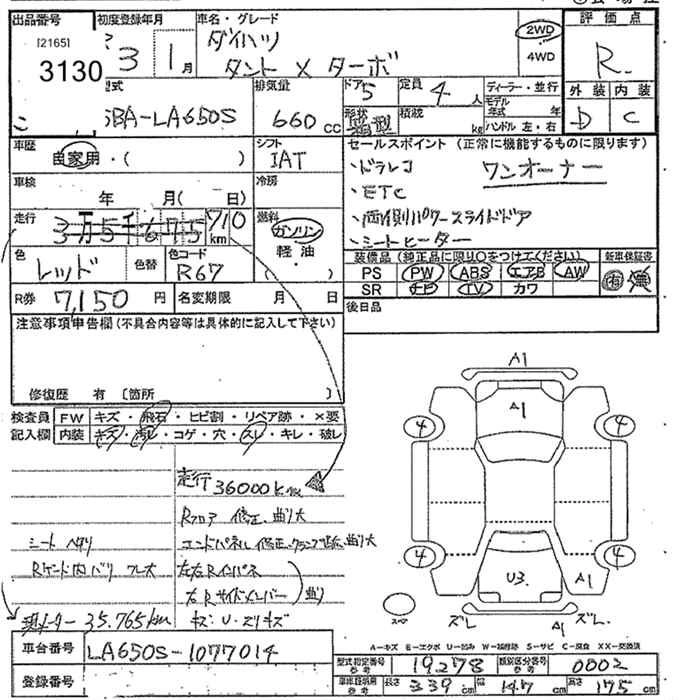 出品番号
[2165]
3130
初度登録年月
3年 1月
車名・グレード
ダイハツ
タント X ターボ
2WD
4WD
評価点
R
外装 内装
D C
型式
5BA-LA650S
排気量
660 CC
ドア 5
形状 箱型
定員 4 人
積載 kg
ディーラー・並行
モデル年式 年
ハンドル 左・右
車歴
自家用・( )
シフト
IAT
車検
年 月( 日)
冷房
走行
3万5千675 710 km
燃料
ガソリン
軽油
( )
色
レッド
色替
色コード
R67
R券 7,150 円
名変期限 月 日
セールスポイント (正常に機能するものに限ります)
・ドラレコ ワンオーナー
・ETC
・両側パワースライドドア
・シートヒーター
装備品 (純正品に限り○をつけてください) 新車保証書
PS PW ABS エアB AW 有 無
SR ナビ TV カワ
後日品
注意事項申告欄 (不具合内容等は具体的に記入して下さい)
修復歴 有 〔箇所 〕
検査員 FW キズ・飛石・ヒビ割・リペア跡・×要
記入欄 内装 キズ・汚レ・コゲ・穴・スレ・キレ・破レ
走行 36000k
Rフロア 修正、曲り大
シート ヘタリ エンドパネル 修正、クランプ跡、曲り大
Rゲート内バリ 左右Rインパネ
右Rサイドメンバー 曲り
現メーター 35,765km キズ・U・ズリキズ
A1
A1
4 4
4 4
U3 A1
スペ ズレ A1 ズレ
A-キズ E-エクボ U-凹み W-補修跡 S-サビ C-腐食 XX-交換済
車台番号 LA650S-1077014
登録番号
型式指定番号 参考 19278 類別区分番号 参考 0002
車庫証明用 参考 長さ 339 cm 幅 147 cm 高さ 175 cm